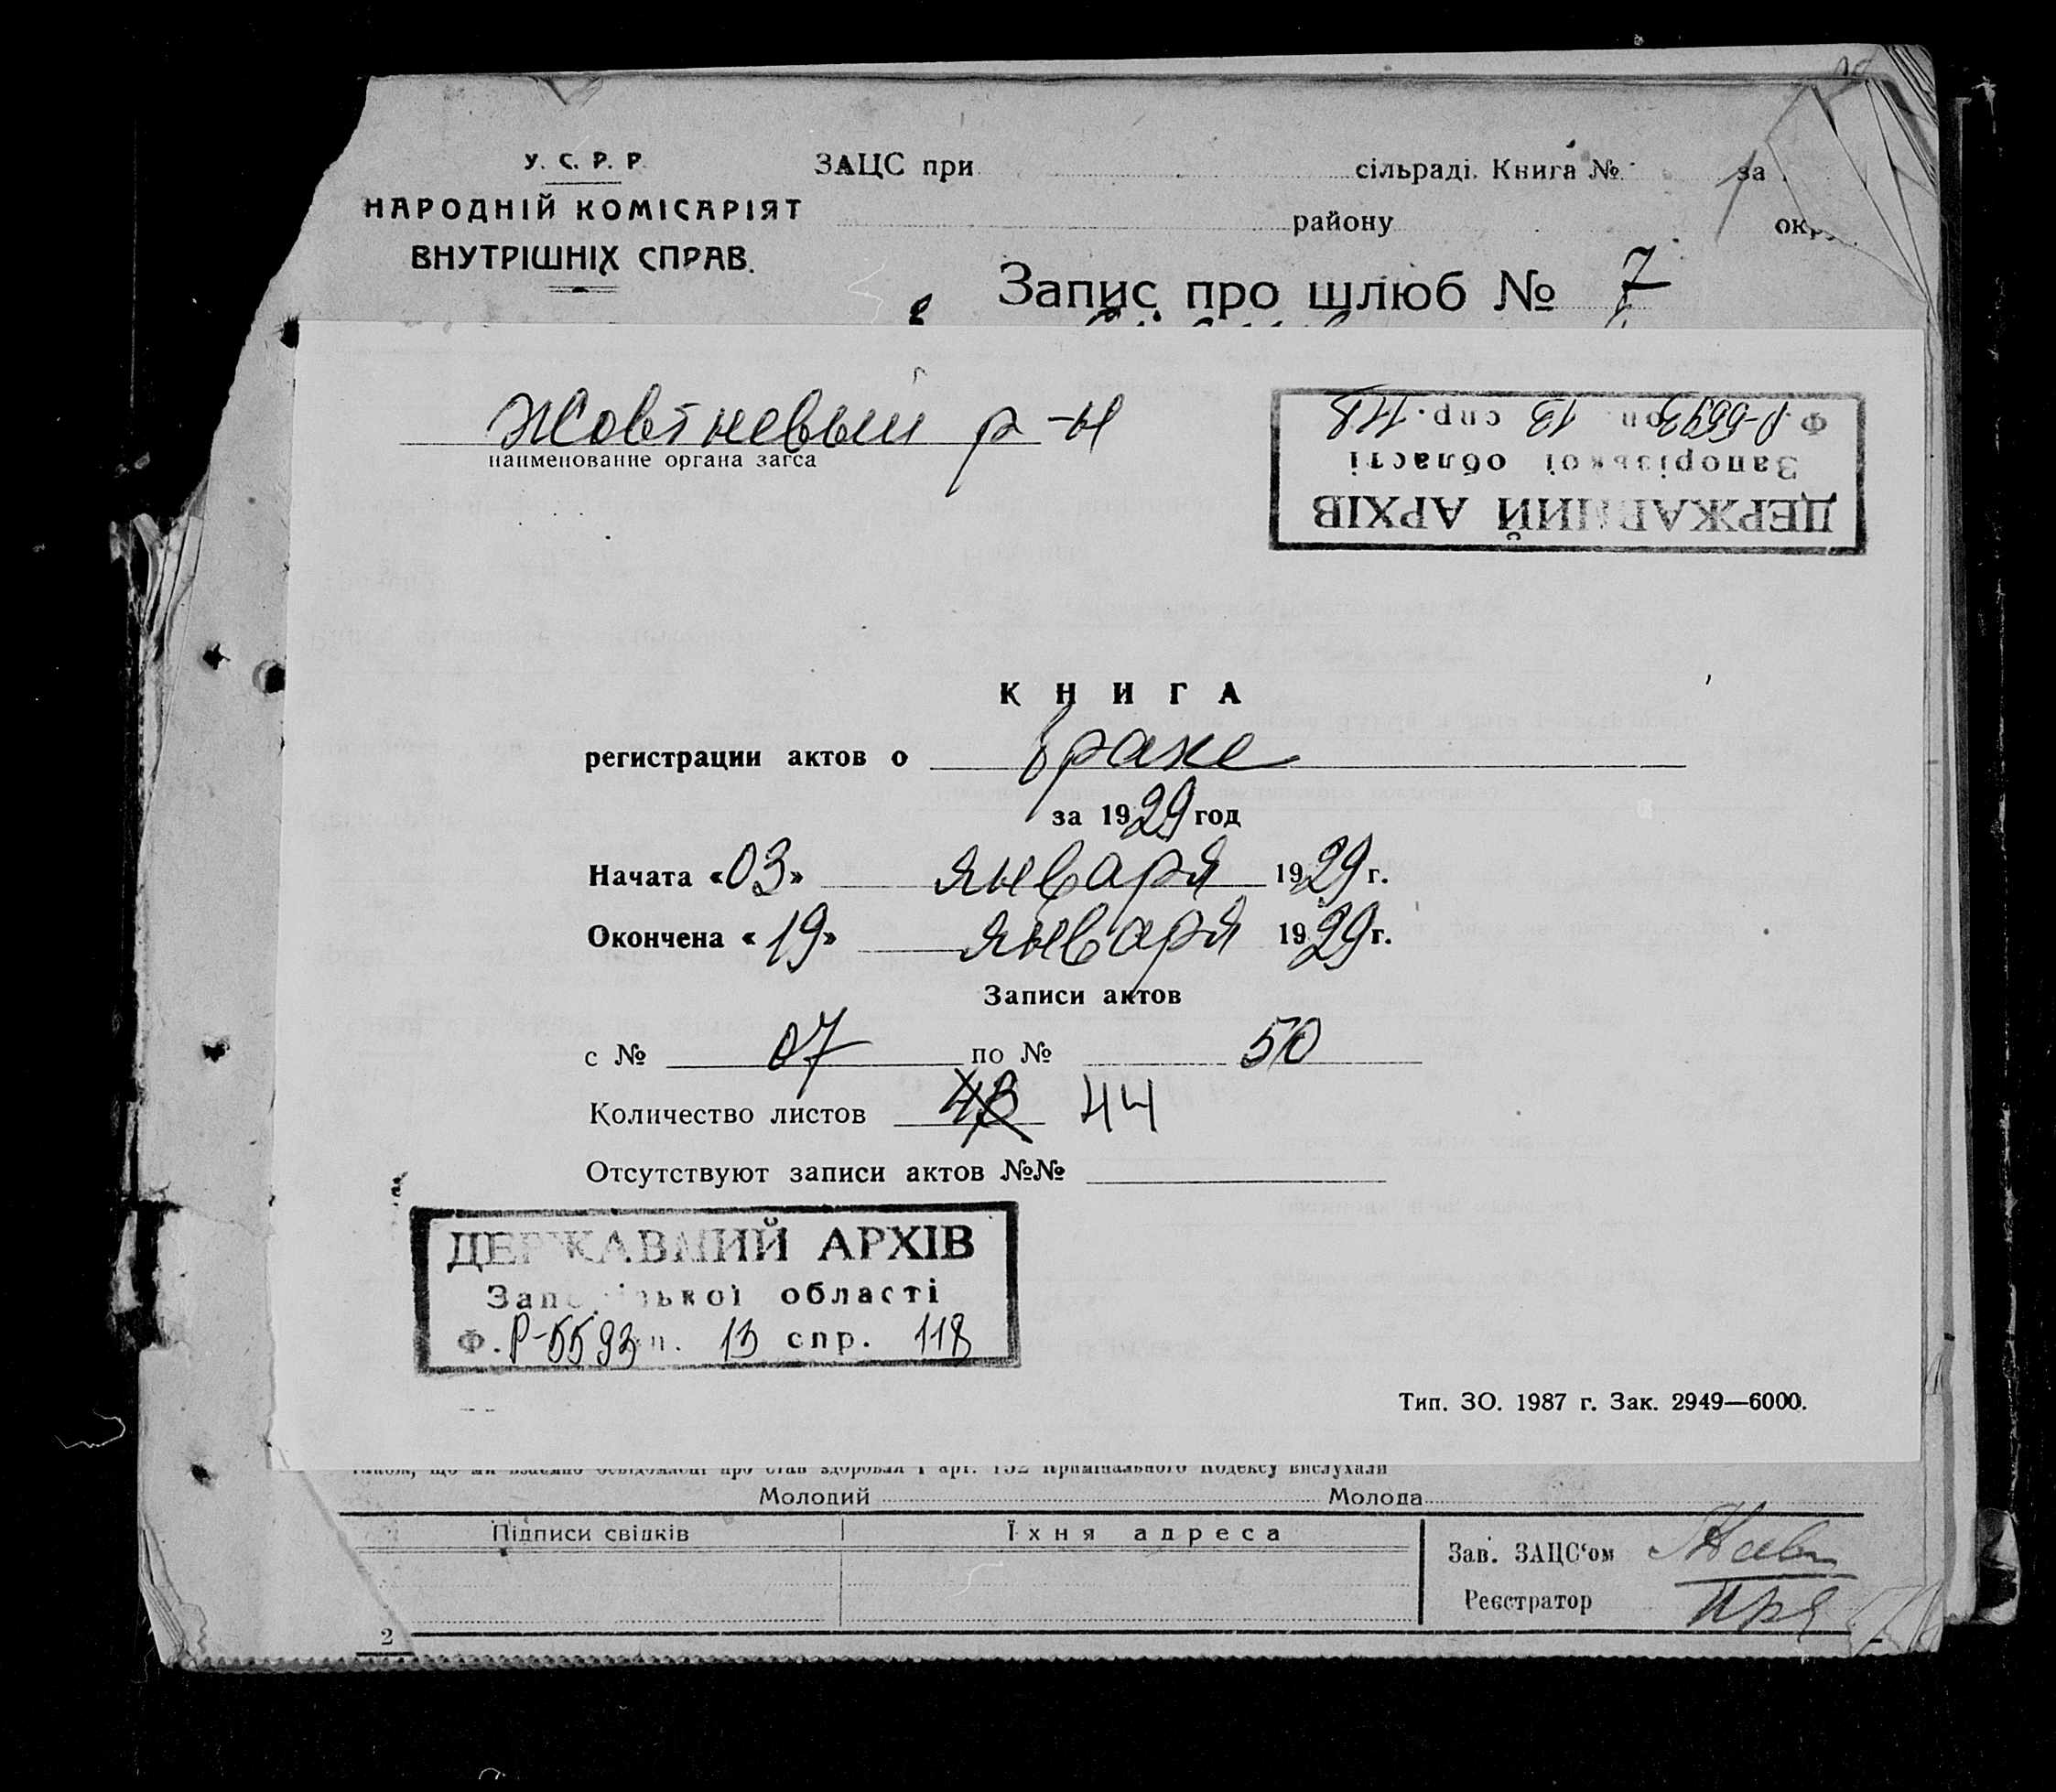 У. С. Р. Р.
НАРОДНІЙ КОМІСАРІЯТ
ВНУТРІШНІХ СПРАВ.
ЗАЦС при сільраді. Книга № за
району
Запис про шлюб № 7
Жовтневый р-н
наименование органа загса
ДЕРЖАВНИЙ АРХІВ
Запорізької області
Ф. Р-5593 оп. 13 спр. 118
КНИГА
регистрации актов о браке
за 1929 год
Начата «03» января 1929 г.
Окончена «19» января 1929 г.
Записи актов
с № 07 по № 50
Количество листов 43 44
Отсутствуют записи актов №№
ДЕРЖАВНИЙ АРХІВ
Запорізької області
Ф. Р-5593 оп. 13 спр. 118
Тип. ЗО. 1987 г. Зак. 2949—6000.
також, що ми взаємно освідомлені про стан здоровля і арт. 152 Кримінального Кодексу вислухали
Молодий Молода
Підписи свідків Їхня адреса
Зав. ЗАЦС'ом
Реєстратор
2